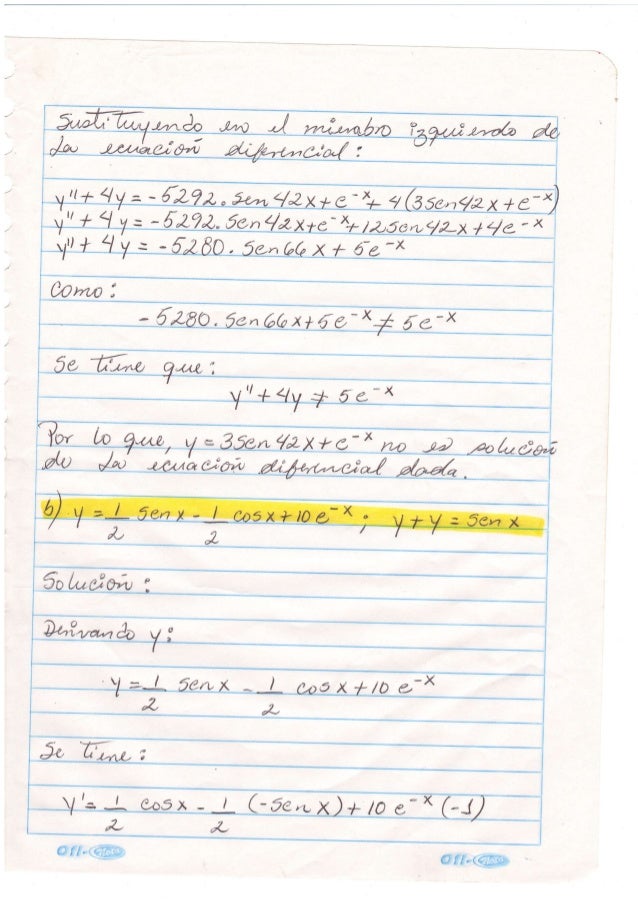 Sustituyendo en el miembro izquierdo de
la ecuación diferencial:
y'' + 4y = -5292. Sen 42x + e^-x + 4(3sen42x + e^-x)
y'' + 4y = -5292. Sen 42x + e^-x + 12sen 42x + 4e^-x
y'' + 4y = -5280. Sen66x + 5e^-x
Como:
-5280. Sen66x + 5e^-x ≠ 5e^-x
Se tiene que:
y'' + 4y ≠ 5e^-x
Por lo que, y = 3sen 42x + e^-x no es solución
de la ecuación diferencial dada.
b) y = 1/2 Sen x - 1/2 cos x + 10 e^-x ; y + y = Sen x
Solución:
Derivando y:
y = 1/2 Sen x - 1/2 cos x + 10 e^-x
Se tiene:
y' = 1/2 cos x - 1/2 (-Sen x) + 10 e^-x (-1)